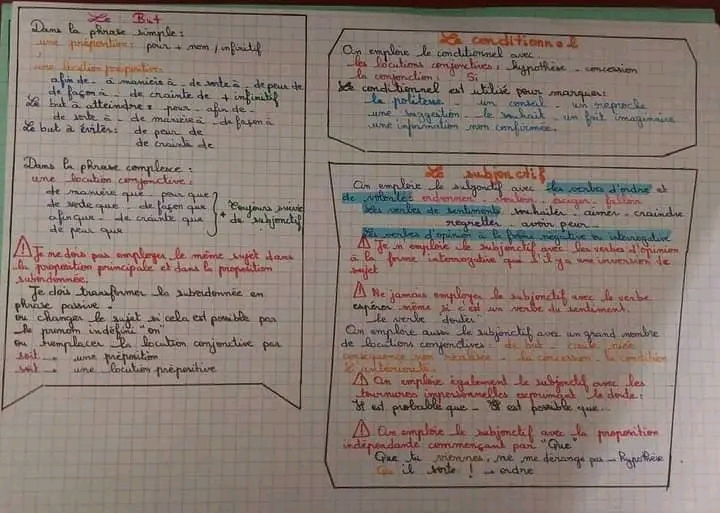 Le But
Dans la phrase simple :
une préposition : pour + nom / infinitif
une locution prépositive :
afin de - à manière à - de sorte à - de peur de
de façon à - de crainte de + infinitif
Le but à atteindre : pour - afin de -
de sorte à - de manière à - de façon à
Le but à éviter : de peur de
de crainte de
Dans la phrase complexe :
une locution conjonctive :
de manière que - pour que
de sorte que - de façon que
afin que - de crainte que
de peur que
+ toujours suivie
de subjonctif
⚠ Je ne dois pas employer le même sujet dans
la proposition principale et dans la proposition
subordonnée.
Je dois transformer la subordonnée en
phrase passive .
ou changer le sujet si cela est possible par
le pronom indéfini "on"
ou remplacer la locution conjonctive par
soit → une préposition
soit → une locution prépositive
Le conditionnel
On emploie le conditionnel avec
les locutions conjonctives : hypothèse - concession
la conjonction : Si
Le conditionnel est utilisé pour marquer :
la politesse - un conseil - un reproche
une suggestion - le souhait - un fait imaginaire
une information non confirmée.
Le subjonctif
On emploie le subjonctif avec les verbes d'ordre et
de volonté : ordonner - vouloir - exiger - falloir
Les verbes de sentiments souhaiter - aimer - craindre
regretter - avoir peur -
Les verbes d'opinion à la forme négative ou interrogative
⚠ Je n'emploie le subjonctif avec les verbes d'opinion
à la forme interrogative que s'il y a une inversion de
sujet
⚠ Ne jamais employer le subjonctif avec le verbe
espérer même si c'est un verbe du sentiment.
le verbe "douter"
On emploie aussi le subjonctif avec un grand nombre
de locutions conjonctives : de but - cause niée
conséquence non réalisée - la concession - la condition
l'antériorité.
⚠ On emploie également le subjonctif avec les
tournures impersonnelles exprimant le doute :
Il est probable que - Il est possible que...
⚠ On emploie le subjonctif avec la proposition
indépendante commençant par "Que"
Que tu viennes, ne me dérange pas → hypothèse
Qu'il sorte ! → ordre